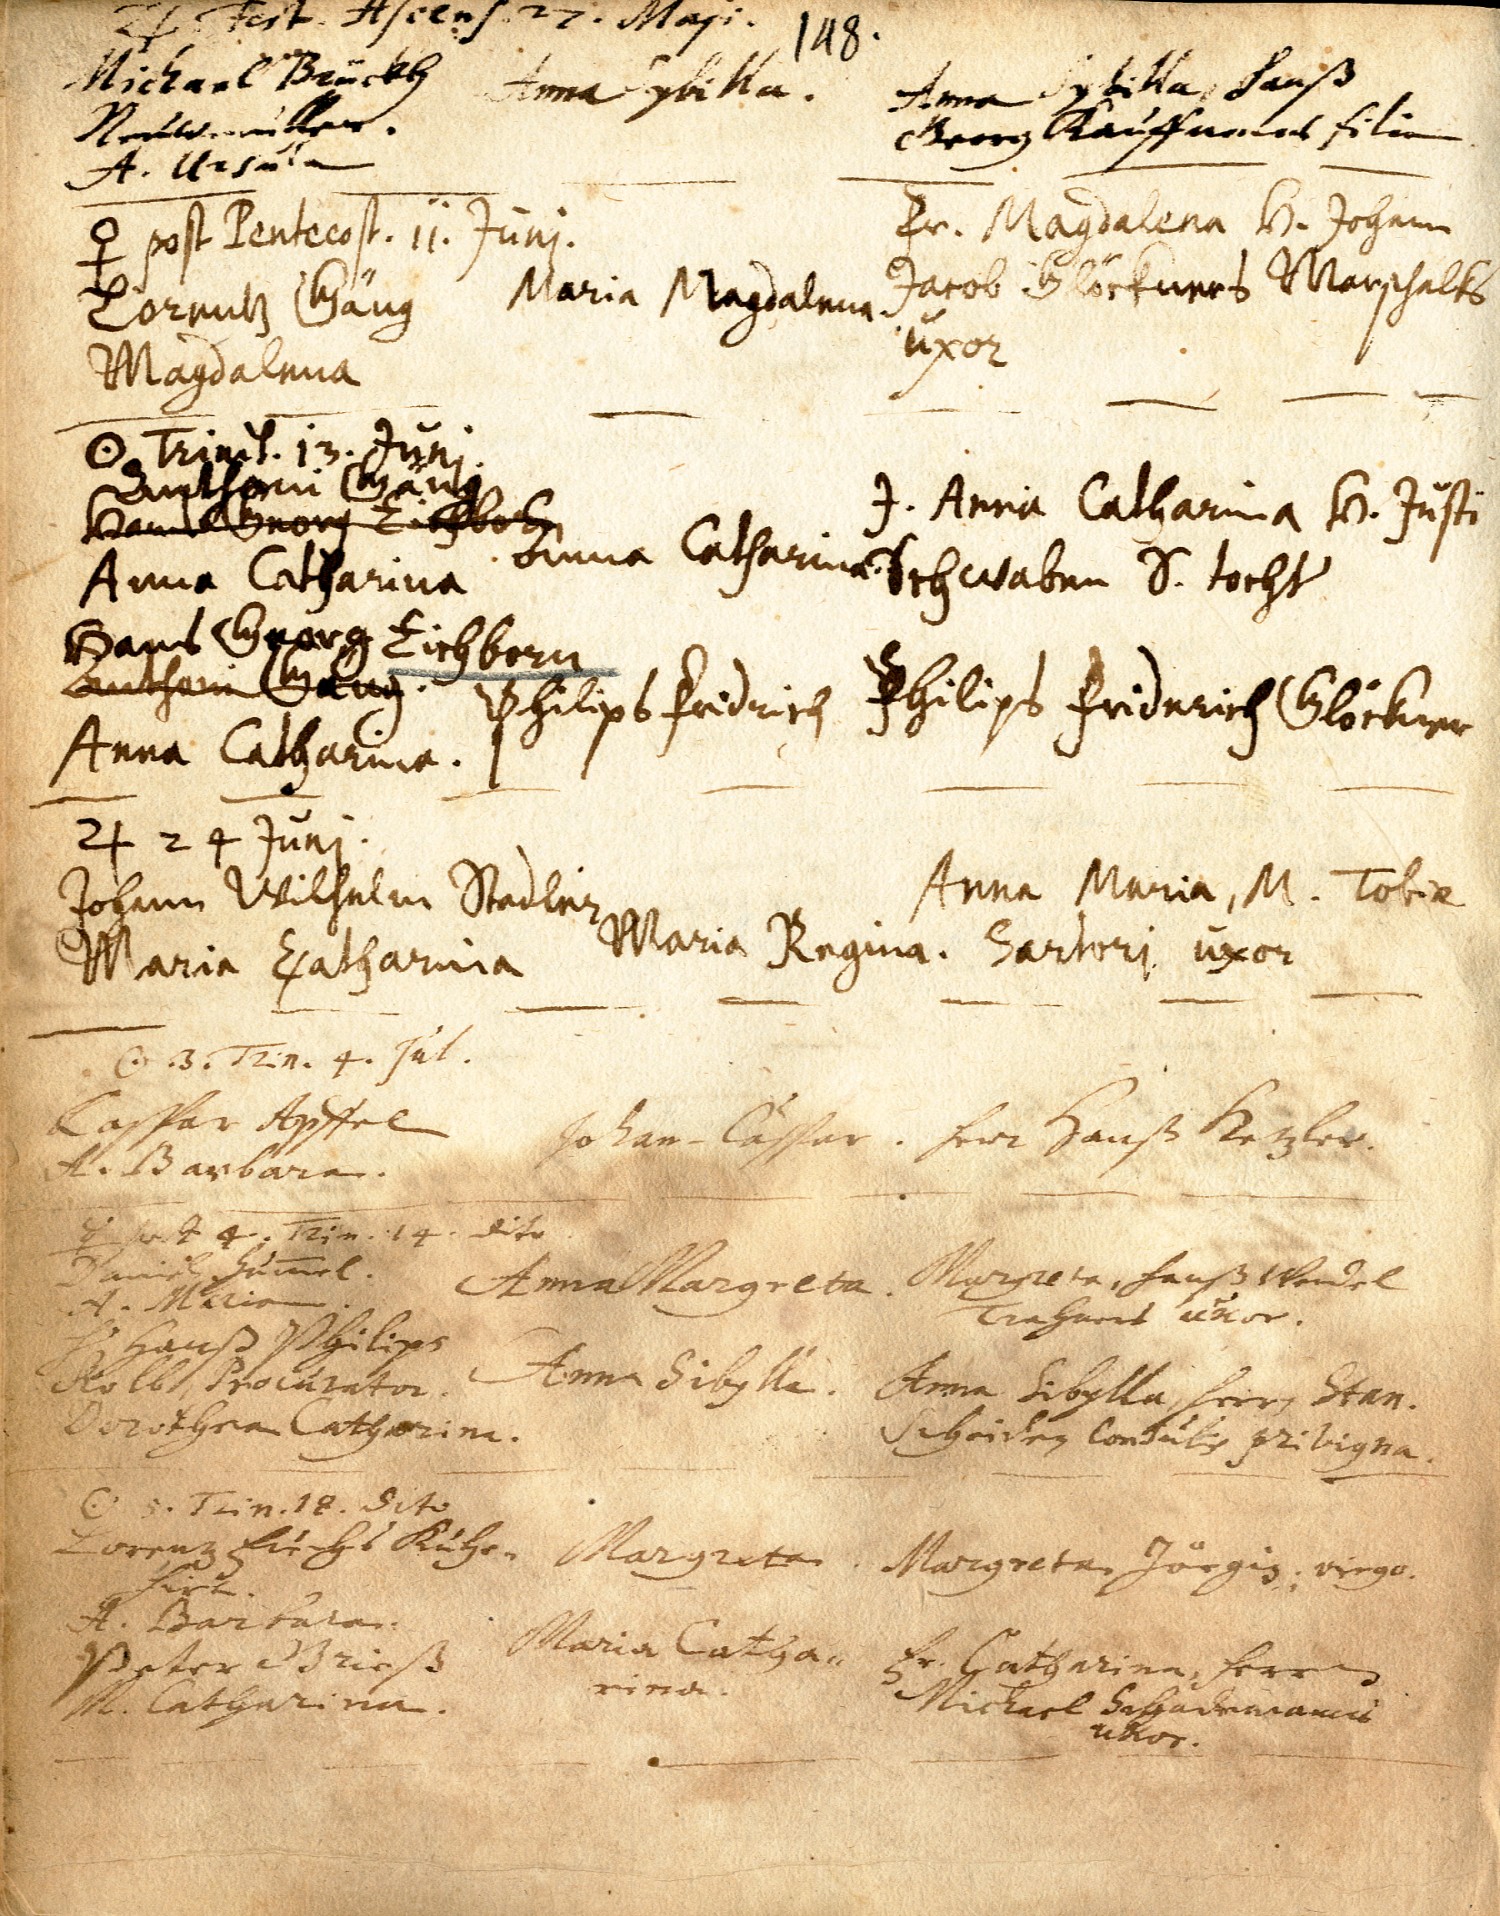 ♃ Fest. Ascens. 27. Maji.
148.
Michael Brückh
A. Ursula
Anna Sybilla.
Anna Sybilla, Hanß
Georg Kauffmans filia
♀ post Pentecost. 11. Junj.
Lorentz Gäug
Magdalena
Maria Magdalena.
Fr. Magdalena H. Johann
Jacob Glöckners Marschalks
uxor
☉ Trinit. 13. Junj.
Anthoni Gäug
Hans Georg Eichborn
Anna Catharina
Anna Catharina.
J. Anna Catharina H. Justi
Schwaben S. tocht
Hans Georg Eichborn
Anthoni Gäug.
Anna Catharina.
Philips Fridrich
Philips Friderich Glöckner
♃ 24 Junj.
Johann Wilhelm Stadler
Maria Catharina
Maria Regina.
Anna Maria, M. Tobiæ
Sartorj uxor
☉ 3. Trin. 4. Jul.
Casspar Apffel
A. Barbara.
Johan-Casspar.
Herr Hanß Ketzler.
☿ post 4. Trin. 14. dito
Daniel Hum̄el.
A. Maria.
Anna Margreta.
Margreta, Hanß Wendel
uxor.
H. Hanß Philips
Kolb, Procurator.
Dorothea Catharina.
Anna Sibylla.
Anna Sibylla, Herrn Stan.
Consulis privigna.
☉ 5. Trin. 18. dito
Lorentz Küh-
hirt.
A. Barbara.
Margreta.
Margreta virgo.
Peter Grieß
M. Catharina.
Maria Catha-
rina.
Fr. Catharina, Herrn
Michael Schademanns
uxor.